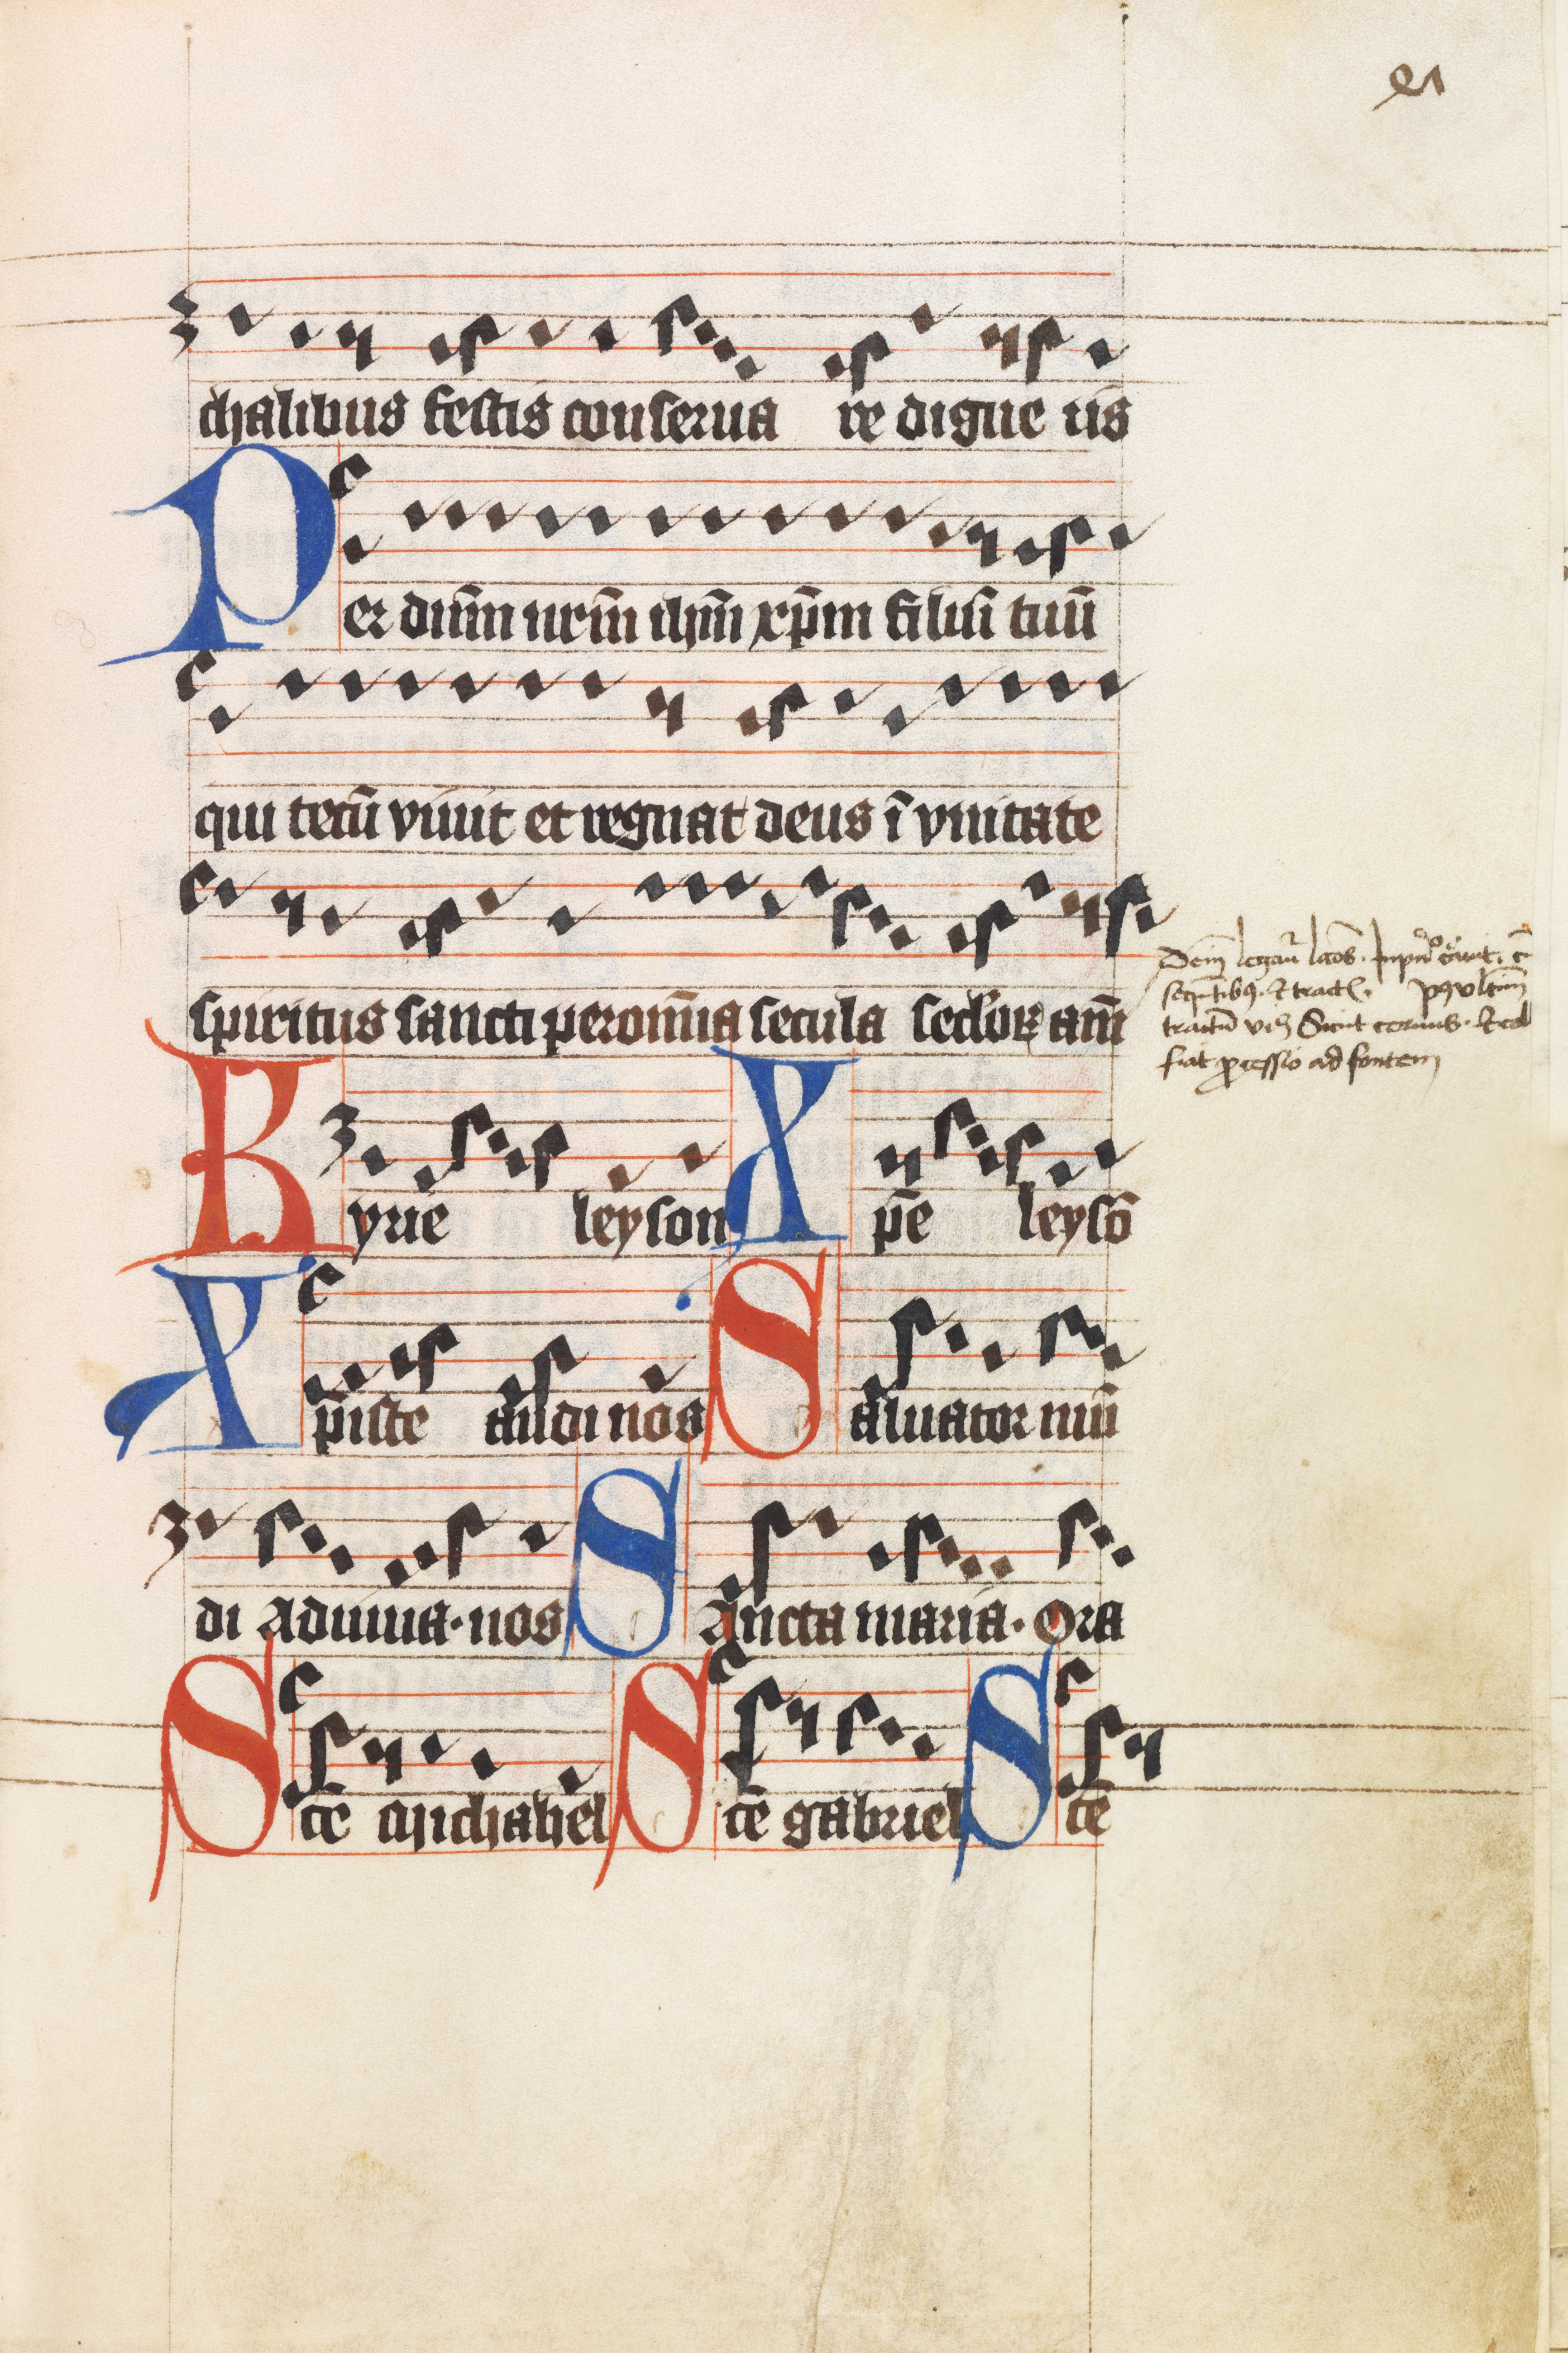 21
chalibus festis conserua re digne ris
Per dnm̄ nrm̄ ihm̄ xp̄m filiū tuū
qui tecū viuit et regnat deus ī vnitate
spiritus sancti per om̄ia secula seclor̄ am̄
Kyrie leyson Xp̄e leysō
Xp̄iste audi nos Saluator mū
di Adiuua·nos Sancta maria· Ora
Scē Michahel Scē gabriel Scē
tractū vꝫ Sicut ceruus·
fiat ꝓcessio ad fontem